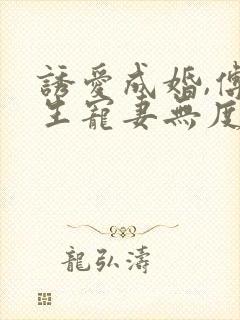 誘愛成婚,傅
生寵妻無度
龍弘濤